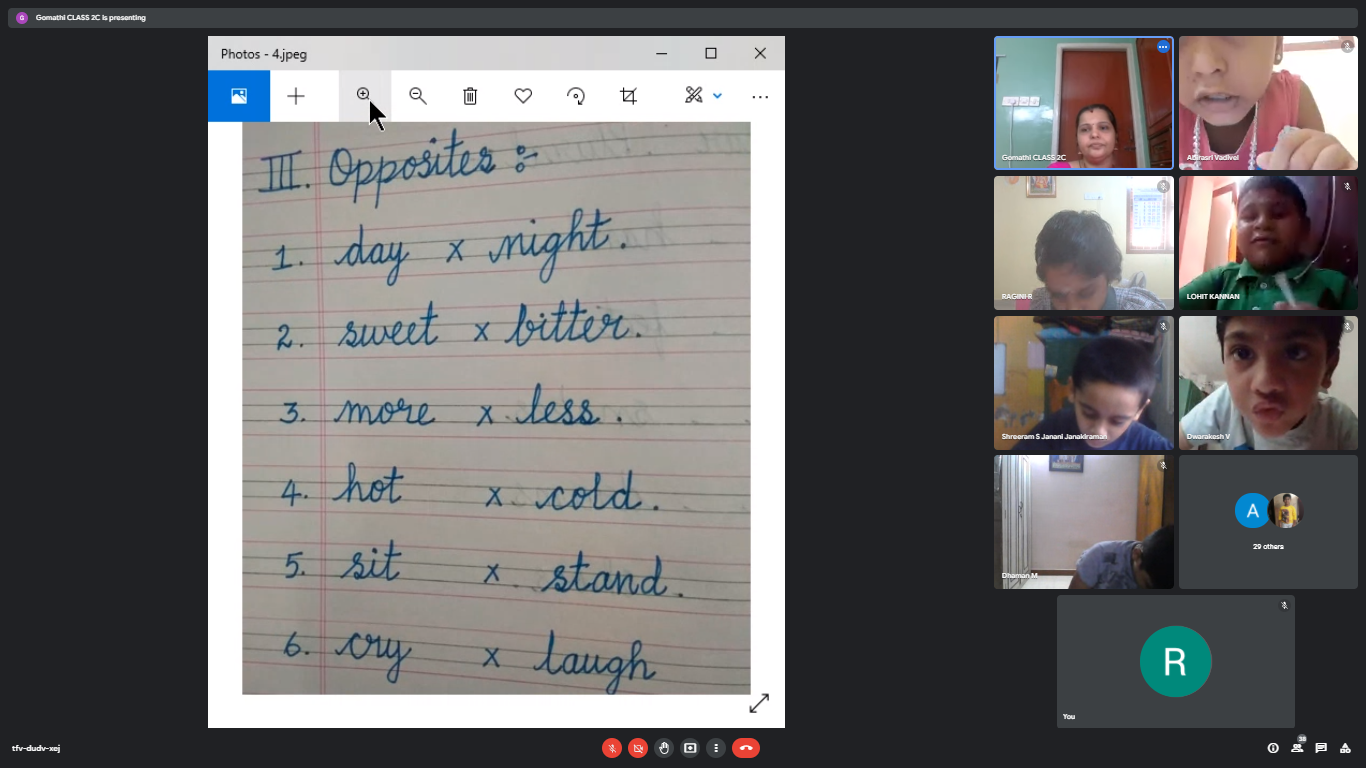 Gomathi CLASS 2C is presenting
G
Photos - 4.jpeg
III. Opposites :-
1. day x night.
2. sweet x bitter.
3. more x less.
4. hot x cold.
5. sit x stand.
6. cry x laugh
Gomathi CLASS 2C
Abirasri Vadivel
RAGINI R
LOHIT KANNAN
Shreeram S Janani Janakiraman
Dwarakesh V
Dhaman M
A
29 others
R
You
tfv-dudv-xej
38